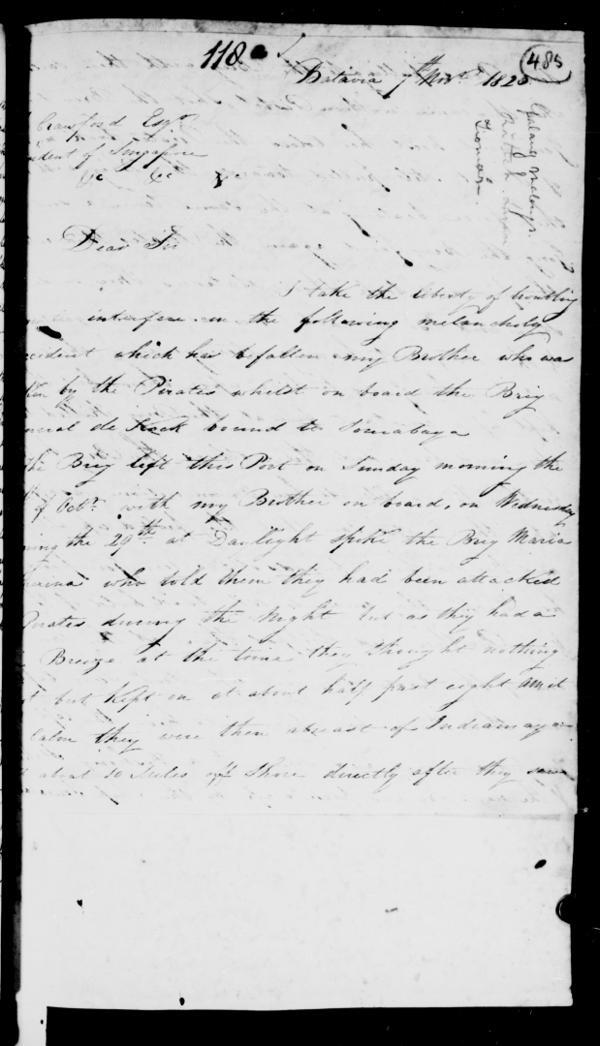 118
485
Batavia 7th Novr 1825
Crawford Esqr
ident of Singapore
&c &c &c
Dear Sir
I take the liberty of troubling
interfere in the following melancholy
ccident which has befallen my Brother who was
ken by the Pirates whilst on board the Brig
neral de Kock bound to Sourabaya
The Brig left this Port on Sunday morning the
of Octr with my Brother on board, on Wednesday
ning the 29th at Daylight spoke the Brig Maria
who told them they had been attacked
Pirates during the Night but as they had a
Breeze at the time they thought nothing
it but kept on at about half past eight
Calm they were then abreast of Indramayo
about 10 Miles off Shore directly after they saw